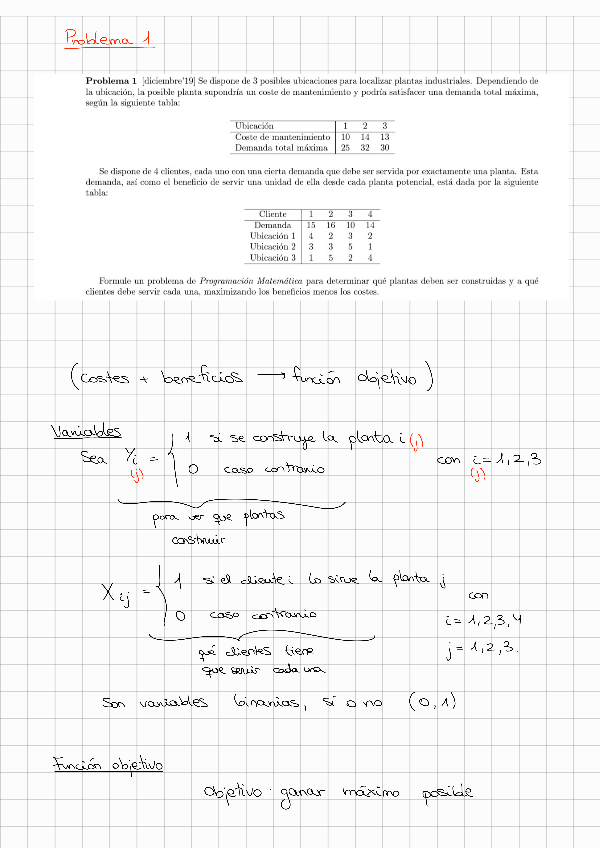 Problema 1
Problema 1 [diciembre'19] Se dispone de 3 posibles ubicaciones para localizar plantas industriales. Dependiendo de
la ubicación, la posible planta supondría un coste de mantenimiento y podría satisfacer una demanda total máxima,
según la siguiente tabla:
Ubicación 1 2 3
Coste de mantenimiento 10 14 13
Demanda total máxima 25 32 30
Se dispone de 4 clientes, cada uno con una cierta demanda que debe ser servida por exactamente una planta. Esta
demanda, así como el beneficio de servir una unidad de ella desde cada planta potencial, está dada por la siguiente
tabla:
Cliente 1 2 3 4
Demanda 15 16 10 14
Ubicación 1 4 2 3 2
Ubicación 2 3 3 5 1
Ubicación 3 1 5 2 4
Formule un problema de Programación Matemática para determinar qué plantas deben ser construidas y a qué
clientes debe servir cada una, maximizando los beneficios menos los costes.
(costes + beneficios → función objetivo)
Variables
Sea Yi = { 1 si se construye la planta i (j)
(j) 0 caso contrario con i = 1, 2, 3
(j)
para ver que plantas
construir
Xij = { 1, si el cliente i lo sirve la planta j
con
0 caso contrario
i = 1, 2, 3, 4
j = 1, 2, 3.
qué clientes tiene
que servir cada una
Son variables binarias, sí o no (0,1)
Función objetivo
Objetivo: ganar máximo posible